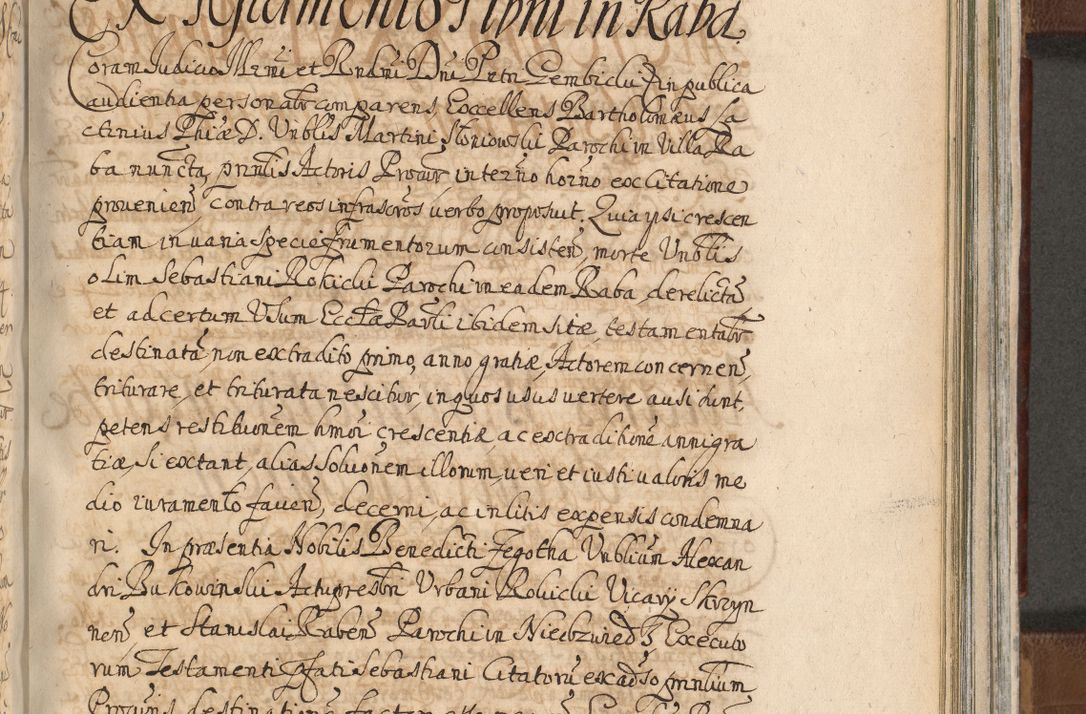 Ex Testamento Plbni in Raba.
Coram Iudicio Illrmi et Rndmi Dni Petri Gembicki in publica
audientia personalr comparens, Excellens Bartholomæus La
ctinius Phiæ D. Vnblis Martini Słoniowski Parochi in Villa Ra
ba nuncta, prntis Actoris Procur in termno horno ex Citatione
prouenien, Contra reos infrascros verbo proposuit. Quia ipsi crescen
tiam in varia specie frumentorum consisten, morte Vnblis
olim Sebastiani Rokicki Parochi in eadem Raba, derelictā
et ad certum Vsum Ecclæ Parli ibidem sitæ, testamentalr
destinatā, non extradito primo, anno gratiæ, Actorem concernen,
triturare, et triturata nescitur, in quos usus vertere ausi sunt,
petens restituonem hmoi crescentiæ, ac extraditione anni gra
tiæ, si extant, alias soluonem illorum, veri et iusti valoris me
dio iuramento facien, decerni, ac in litis expensis condemna
ri. In præsentia Nobilis Benedicti Zegotha Vnblium Alexan
dri Bukowinski Actu presbri Urbani Rokicki Vicarij Skrzyn
nen et Stanislai Raben Parochi in Niedzwiedz Executo
rum Testamenti pfati Sebastiani Citatorū ex adso prntium